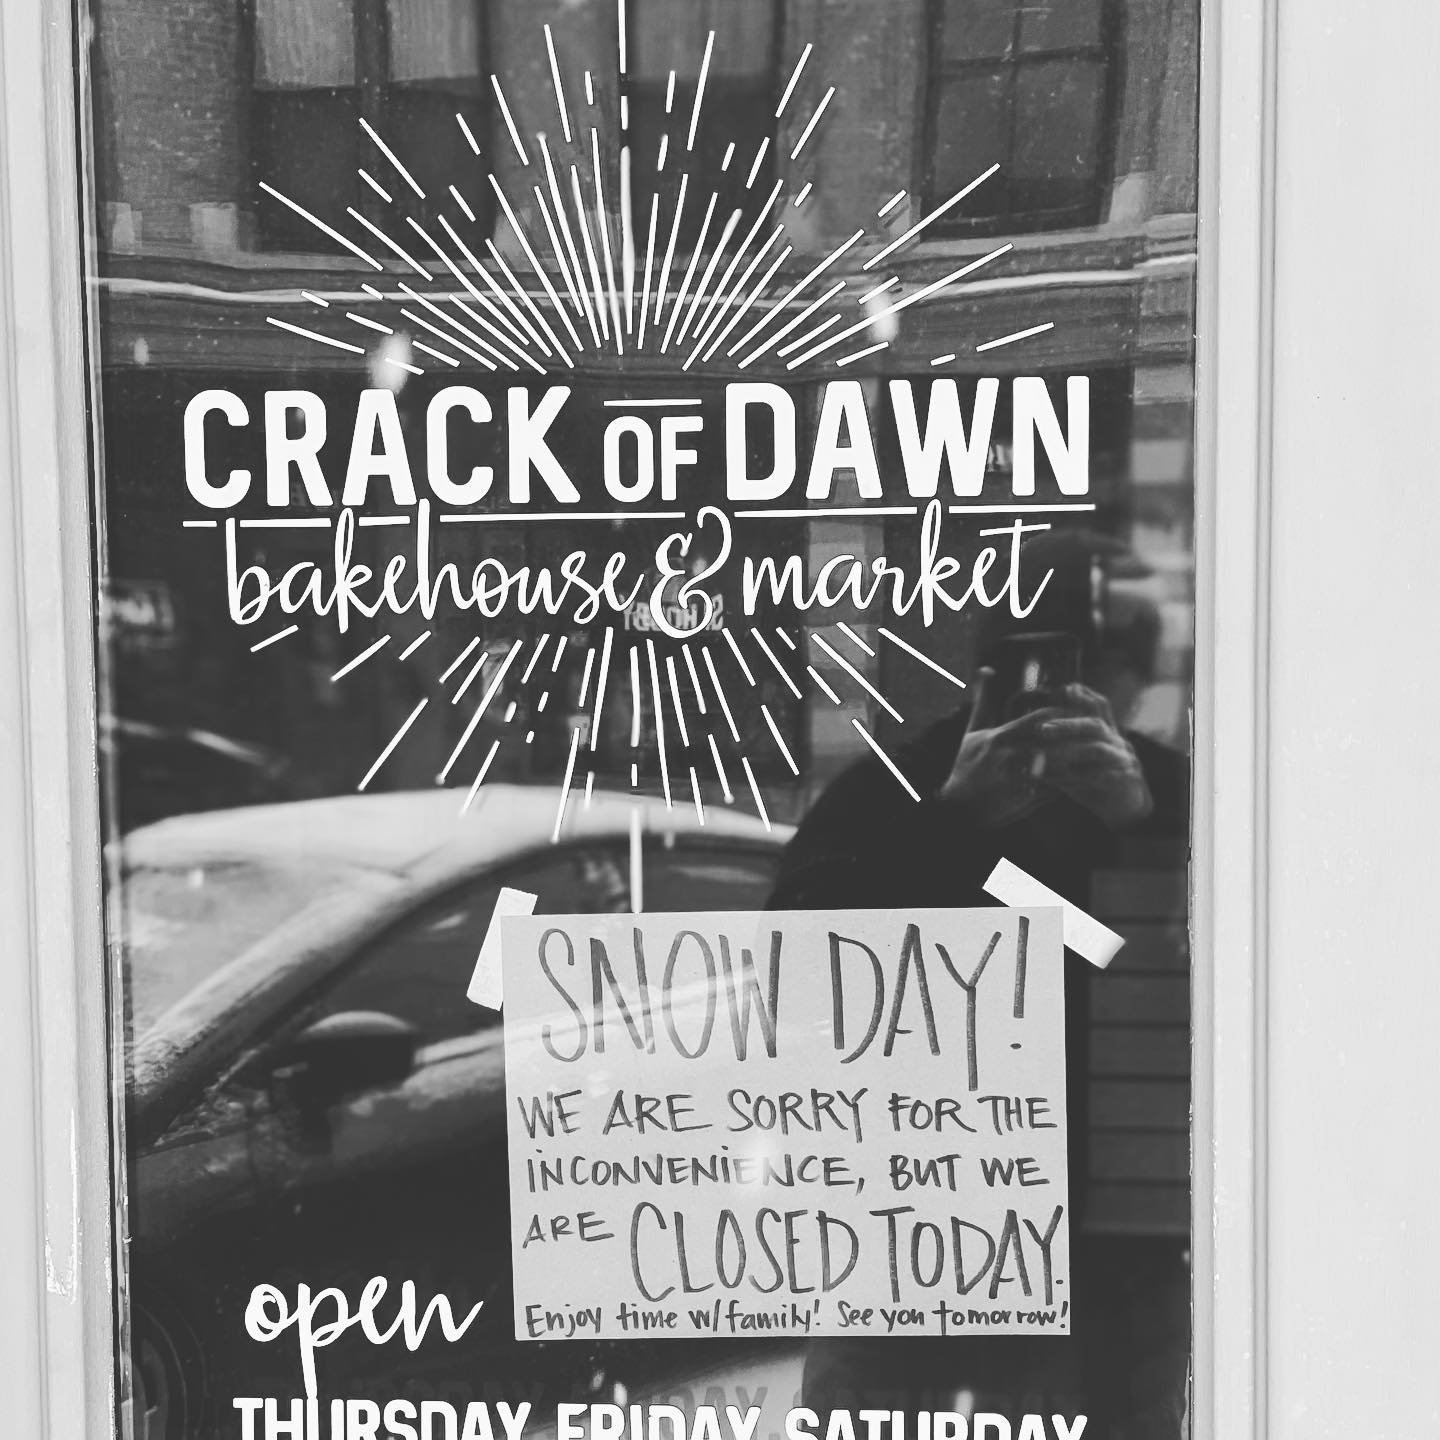 CRACK OF DAWN
bakehouse & market
SNOW DAY!
WE ARE SORRY FOR THE
INCONVENIENCE, BUT WE
ARE CLOSED TODAY.
Enjoy time w/family! See you tomorrow!
open
THURSDAY FRIDAY SATURDAY